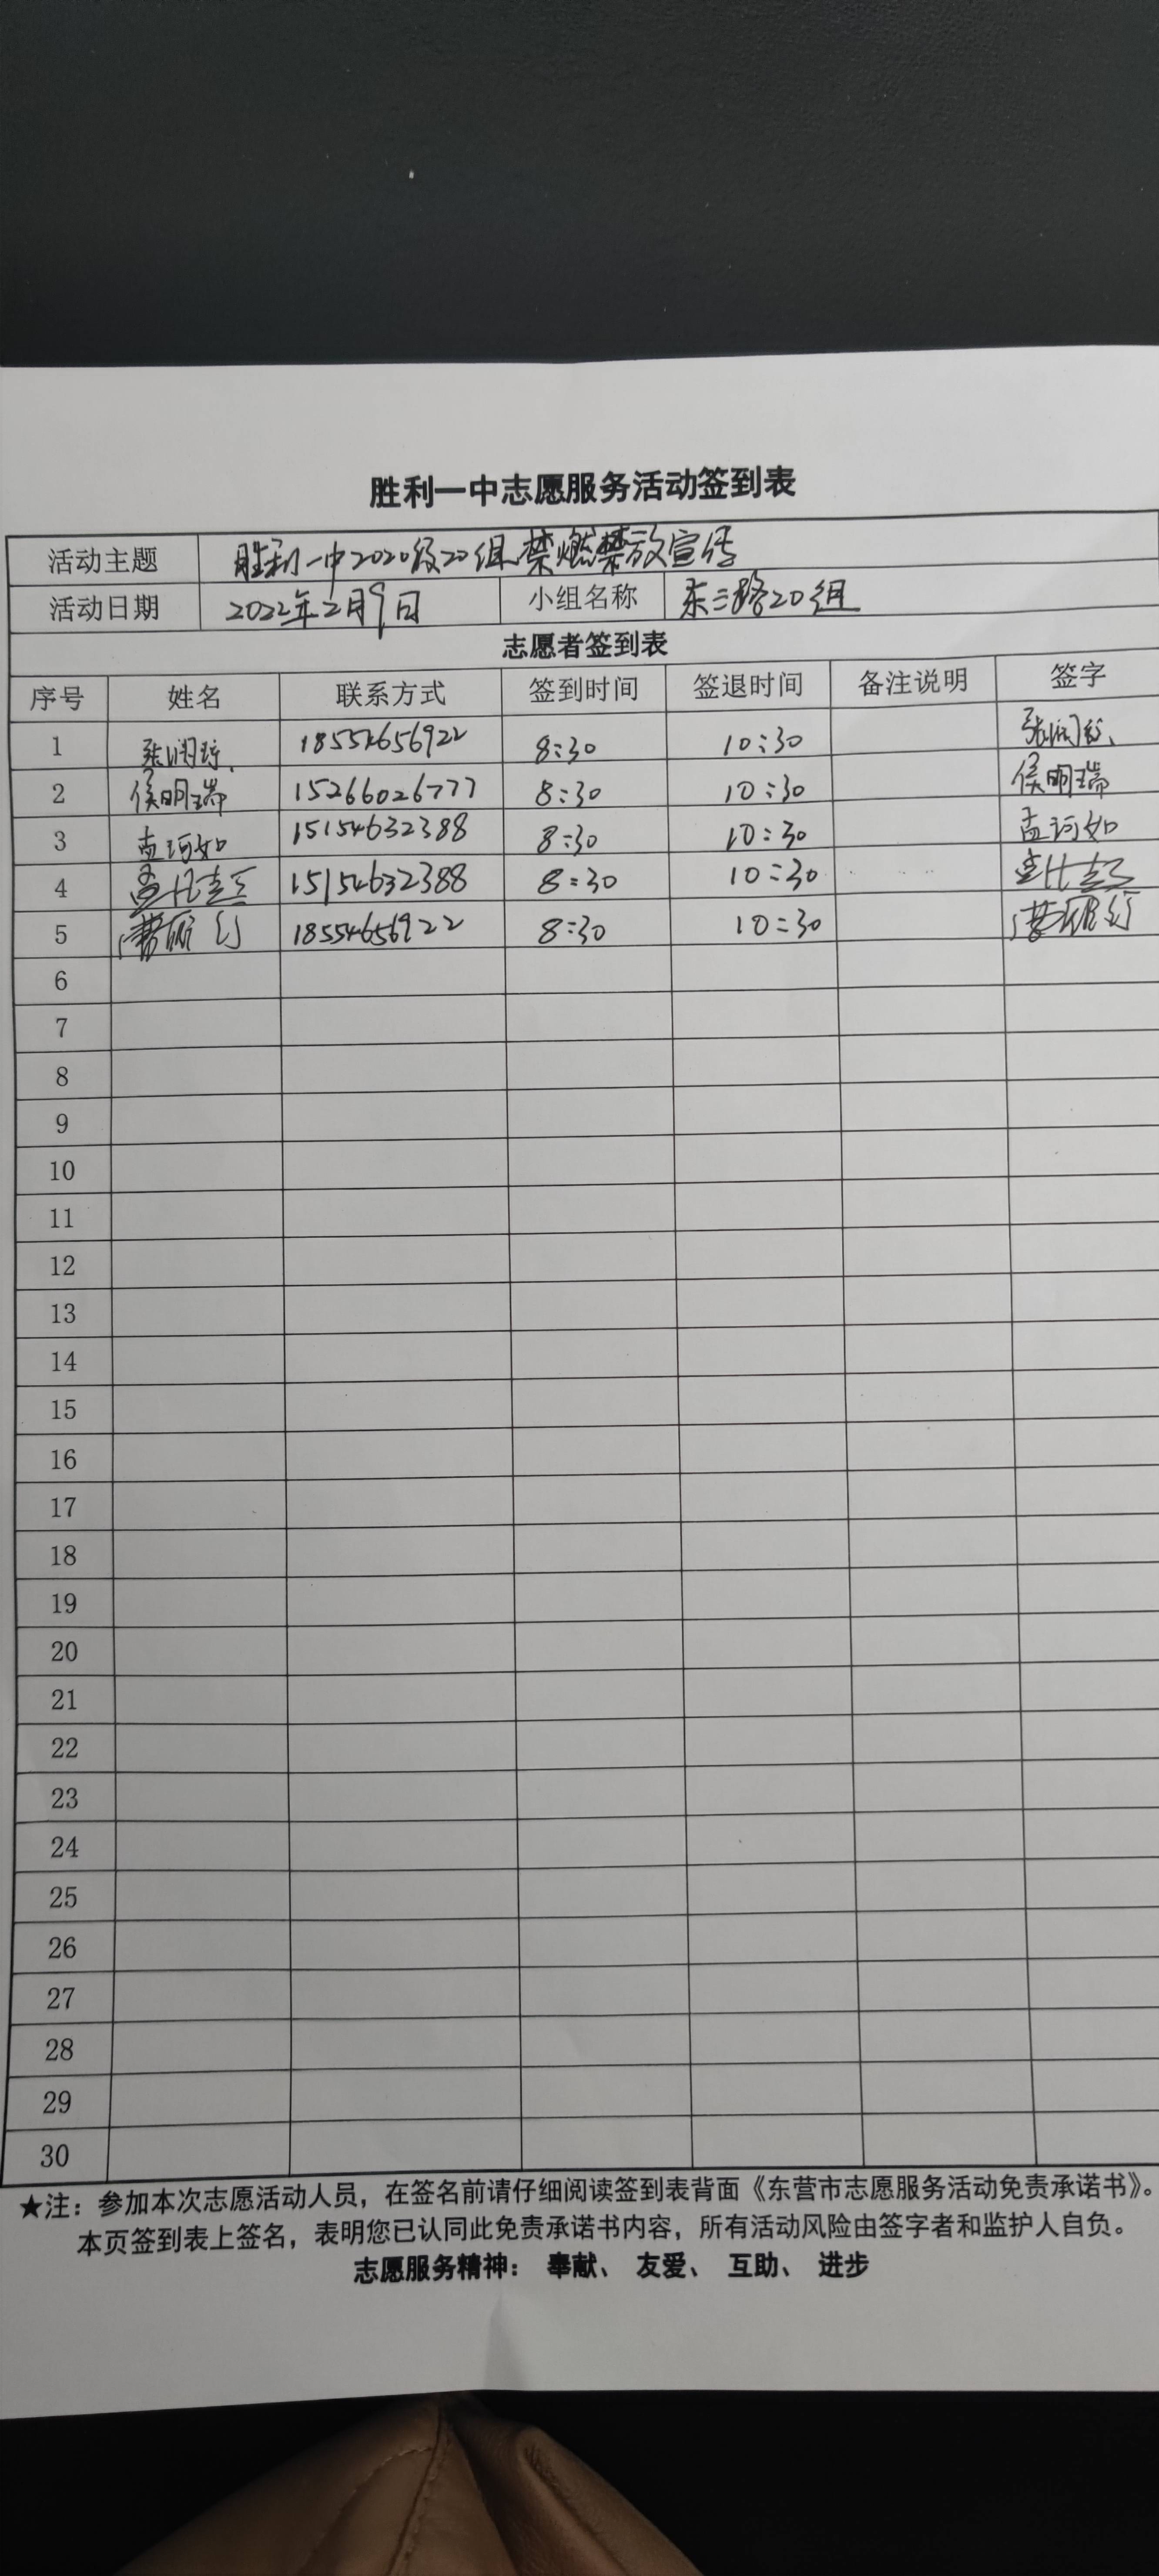 胜利一中志愿服务活动签到表
活动主题 胜利一中2020级20组禁燃禁放宣传
活动日期 2022年2月9日 小组名称 东三路20组
志愿者签到表
序号 姓名 联系方式 签到时间 签退时间 备注说明 签字
1 张润 18554656922 8:30 10:30 张润
2 侯明瑞 15266026777 8:30 10:30 侯明瑞
3 孟河如 15154632388 8:30 10:30 孟河如
4 15154632388 8:30 10:30
5 18554656922 8:30 10:30
6
7
8
9
10
11
12
13
14
15
16
17
18
19
20
21
22
23
24
25
26
27
28
29
30
★注：参加本次志愿活动人员，在签名前请仔细阅读签到表背面《东营市志愿服务活动免责承诺书》。
本页签到表上签名，表明您已认同此免责承诺书内容，所有活动风险由签字者和监护人自负。
志愿服务精神： 奉献、 友爱、 互助、 进步